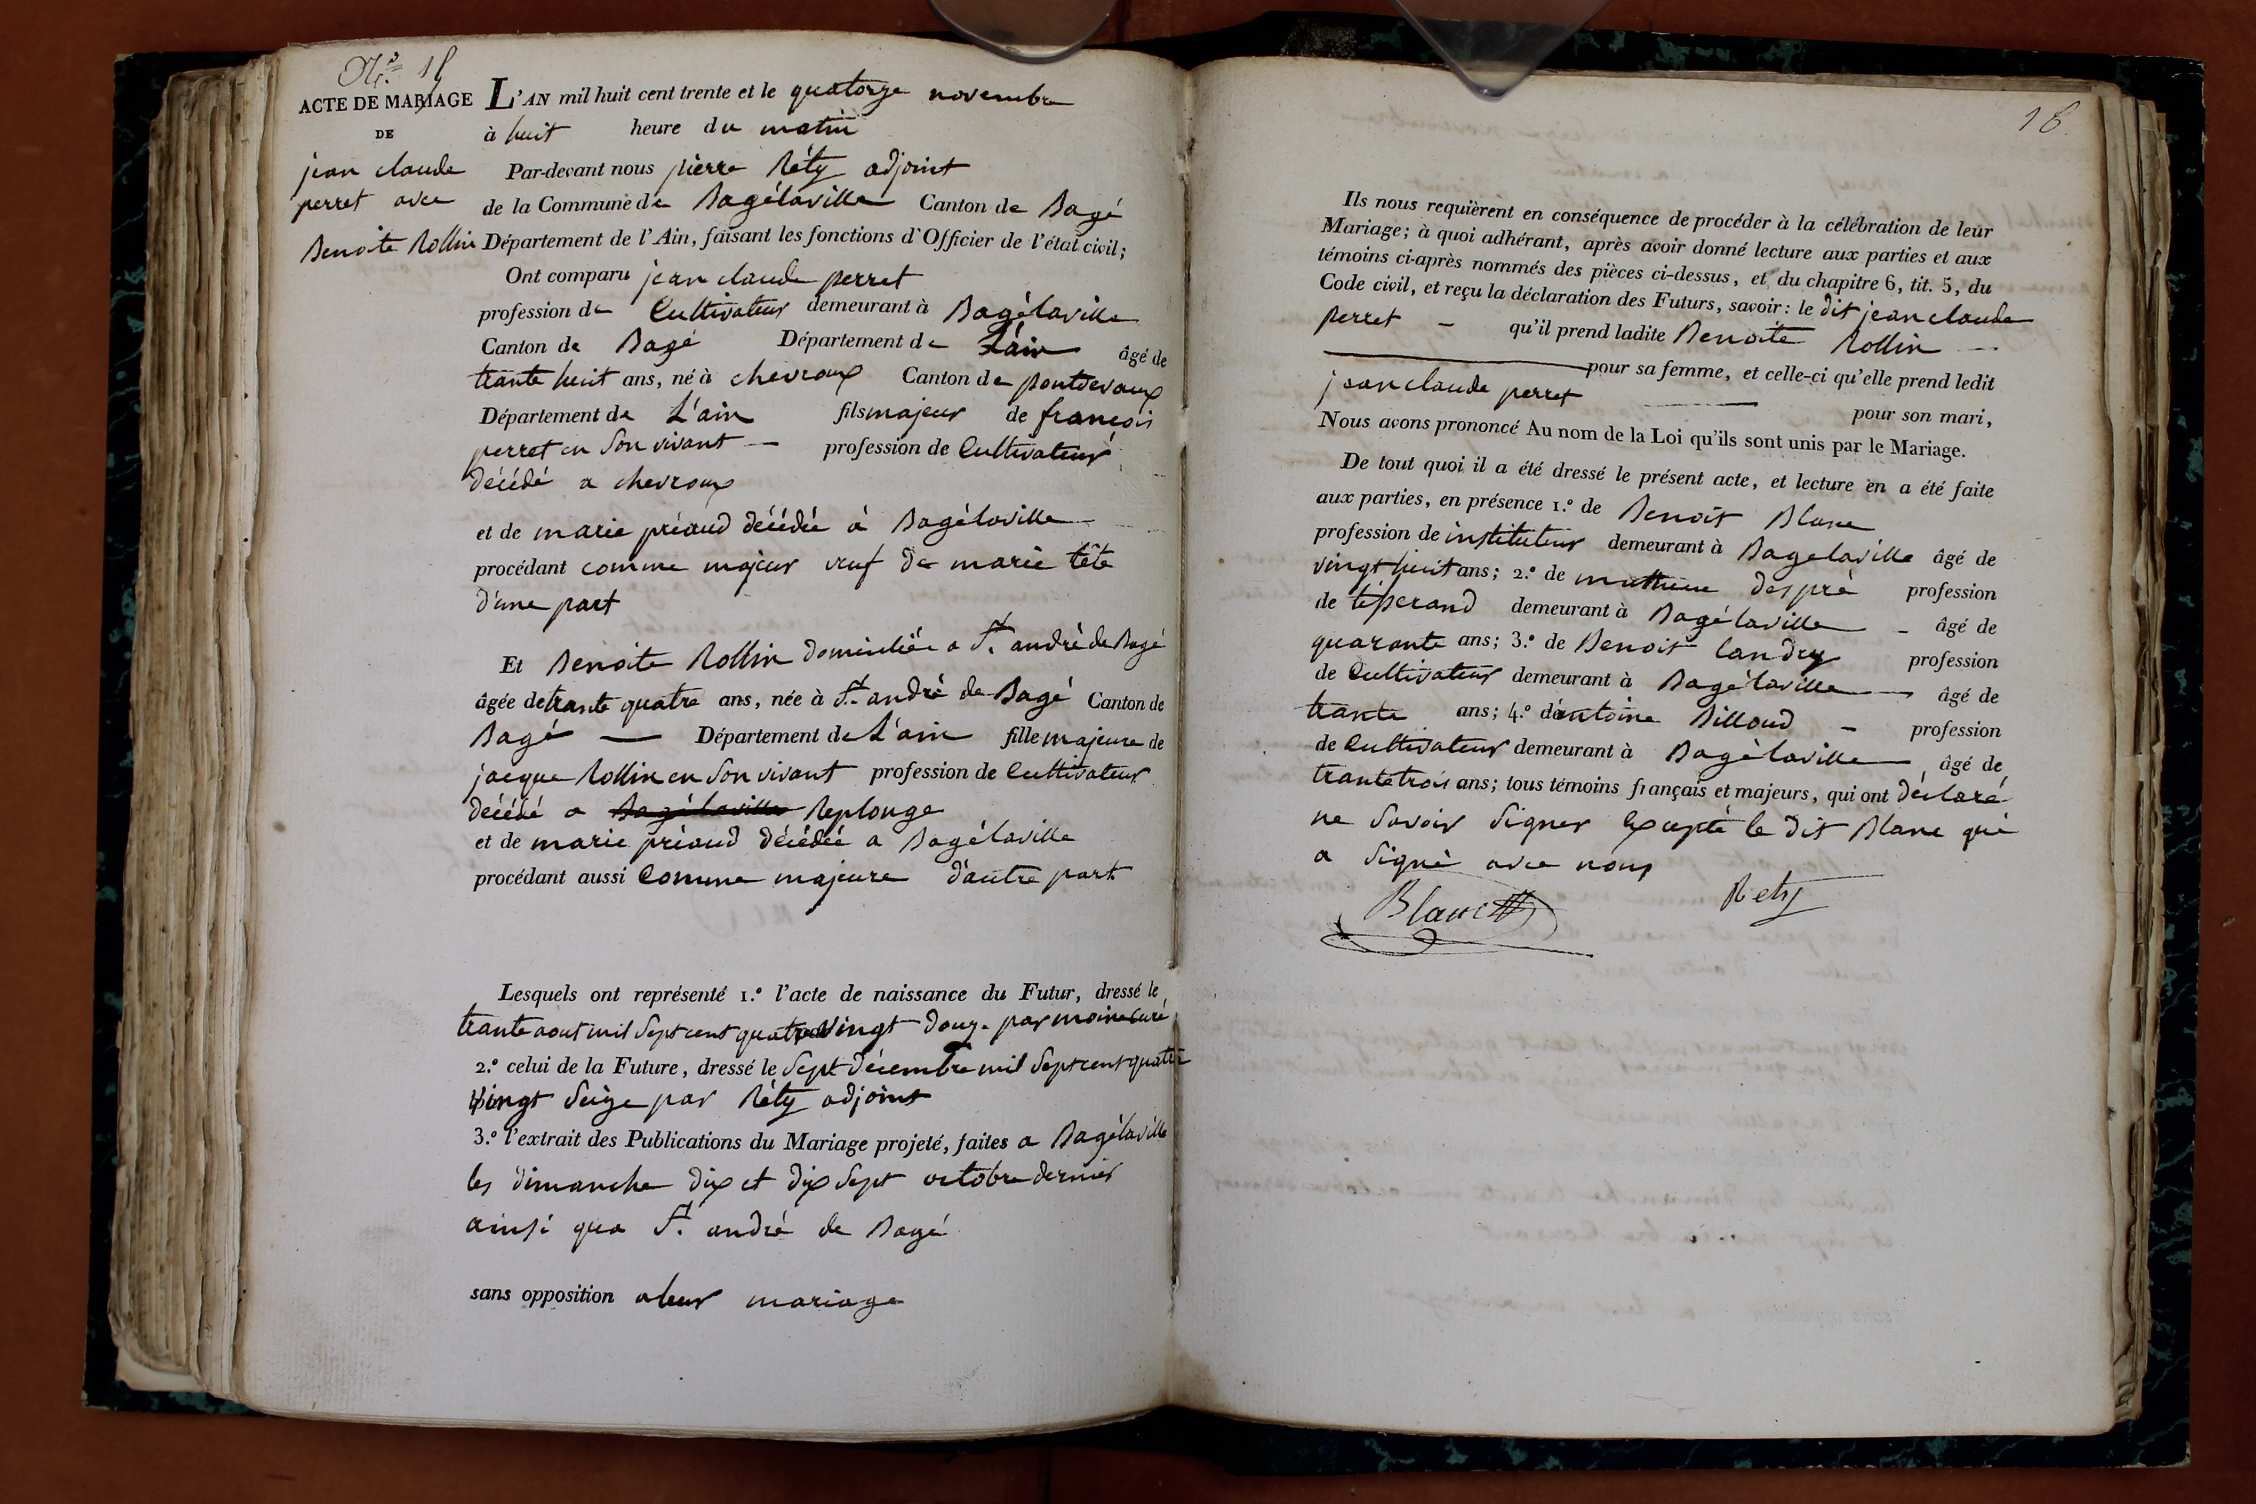 N.° 15
ACTE DE MARIAGE
DE
jean claude
perret avec
Benoite Rollin
L'AN mil huit cent trente et le quatorze novembre
à huit heure du matin
Par-devant nous pierre Réty adjoint
de la Commune de Bagélaville Canton de Bagé
Département de l'Ain, faisant les fonctions d'Officier de l'état civil;
Ont comparu jean claude perret
profession de Cultivateur demeurant à Bagélaville
Canton de Bagé Département de L'ain âgé de
trante huit ans, né à chevroux Canton de pontdevaux
Département de L'ain fils majeur de francois
perret en Son vivant — profession de Cultivateur
décédé a chevroux
et de marie préaud décédée à Bagélaville
procédant comme majeur veuf de marie tête
d'une part
Et Benoite Rollin domiciliée a St. andré de Bagé
âgée de trante quatre ans, née à St. andré de Bagé Canton de
Bagé — Département de L'ain fille majeure de
jacque Rollin en Son vivant profession de Cultivateur
décédé a Bagélaville Replonge
et de marie préaud décédée a Bagélaville
procédant aussi Comme majeure d'autre part
Lesquels ont représenté 1.° l'acte de naissance du Futur, dressé le
trante aout mil Sept cent quatre Vingt douze par moine Curé
2.° celui de la Future, dressé le Sept décembre mil Sept cent quatre
Vingt Seize par Réty adjoint
3.° l'extrait des Publications du Mariage projeté, faites a Bagélaville
les dimanche dix et dix Sept octobre dernier
ainsi qua St. andré de Bagé
sans opposition a leur mariage
16.
Ils nous requièrent en conséquence de procéder à la célébration de leur
Mariage; à quoi adhérant, après avoir donné lecture aux parties et aux
témoins ci-après nommés des pièces ci-dessus, et du chapitre 6, tit. 5, du
Code civil, et reçu la déclaration des Futurs, savoir: le dit jean claude
perret — qu'il prend ladite Benoite Rollin —
pour sa femme, et celle-ci qu'elle prend ledit
jean claude perret pour son mari,
Nous avons prononcé Au nom de la Loi qu'ils sont unis par le Mariage.
De tout quoi il a été dressé le présent acte, et lecture en a été faite
aux parties, en présence 1.° de Benoit Blanc
profession de instituteur demeurant à Bagelaville âgé de
vingt huit ans; 2.° de despré profession
de tisserand demeurant à Bagélaville — âgé de
quarante ans; 3.° de Benoit landry profession
de Cultivateur demeurant à Bagélaville — âgé de
trante ans; 4.° d'antoine Billoud — profession
de Cultivateur demeurant à Bagélaville — âgé de
trante trois ans; tous témoins français et majeurs, qui ont déclaré
ne Savoir Signer Excepté le dit Blanc qui
a Signé avec nous
Blanc Rety